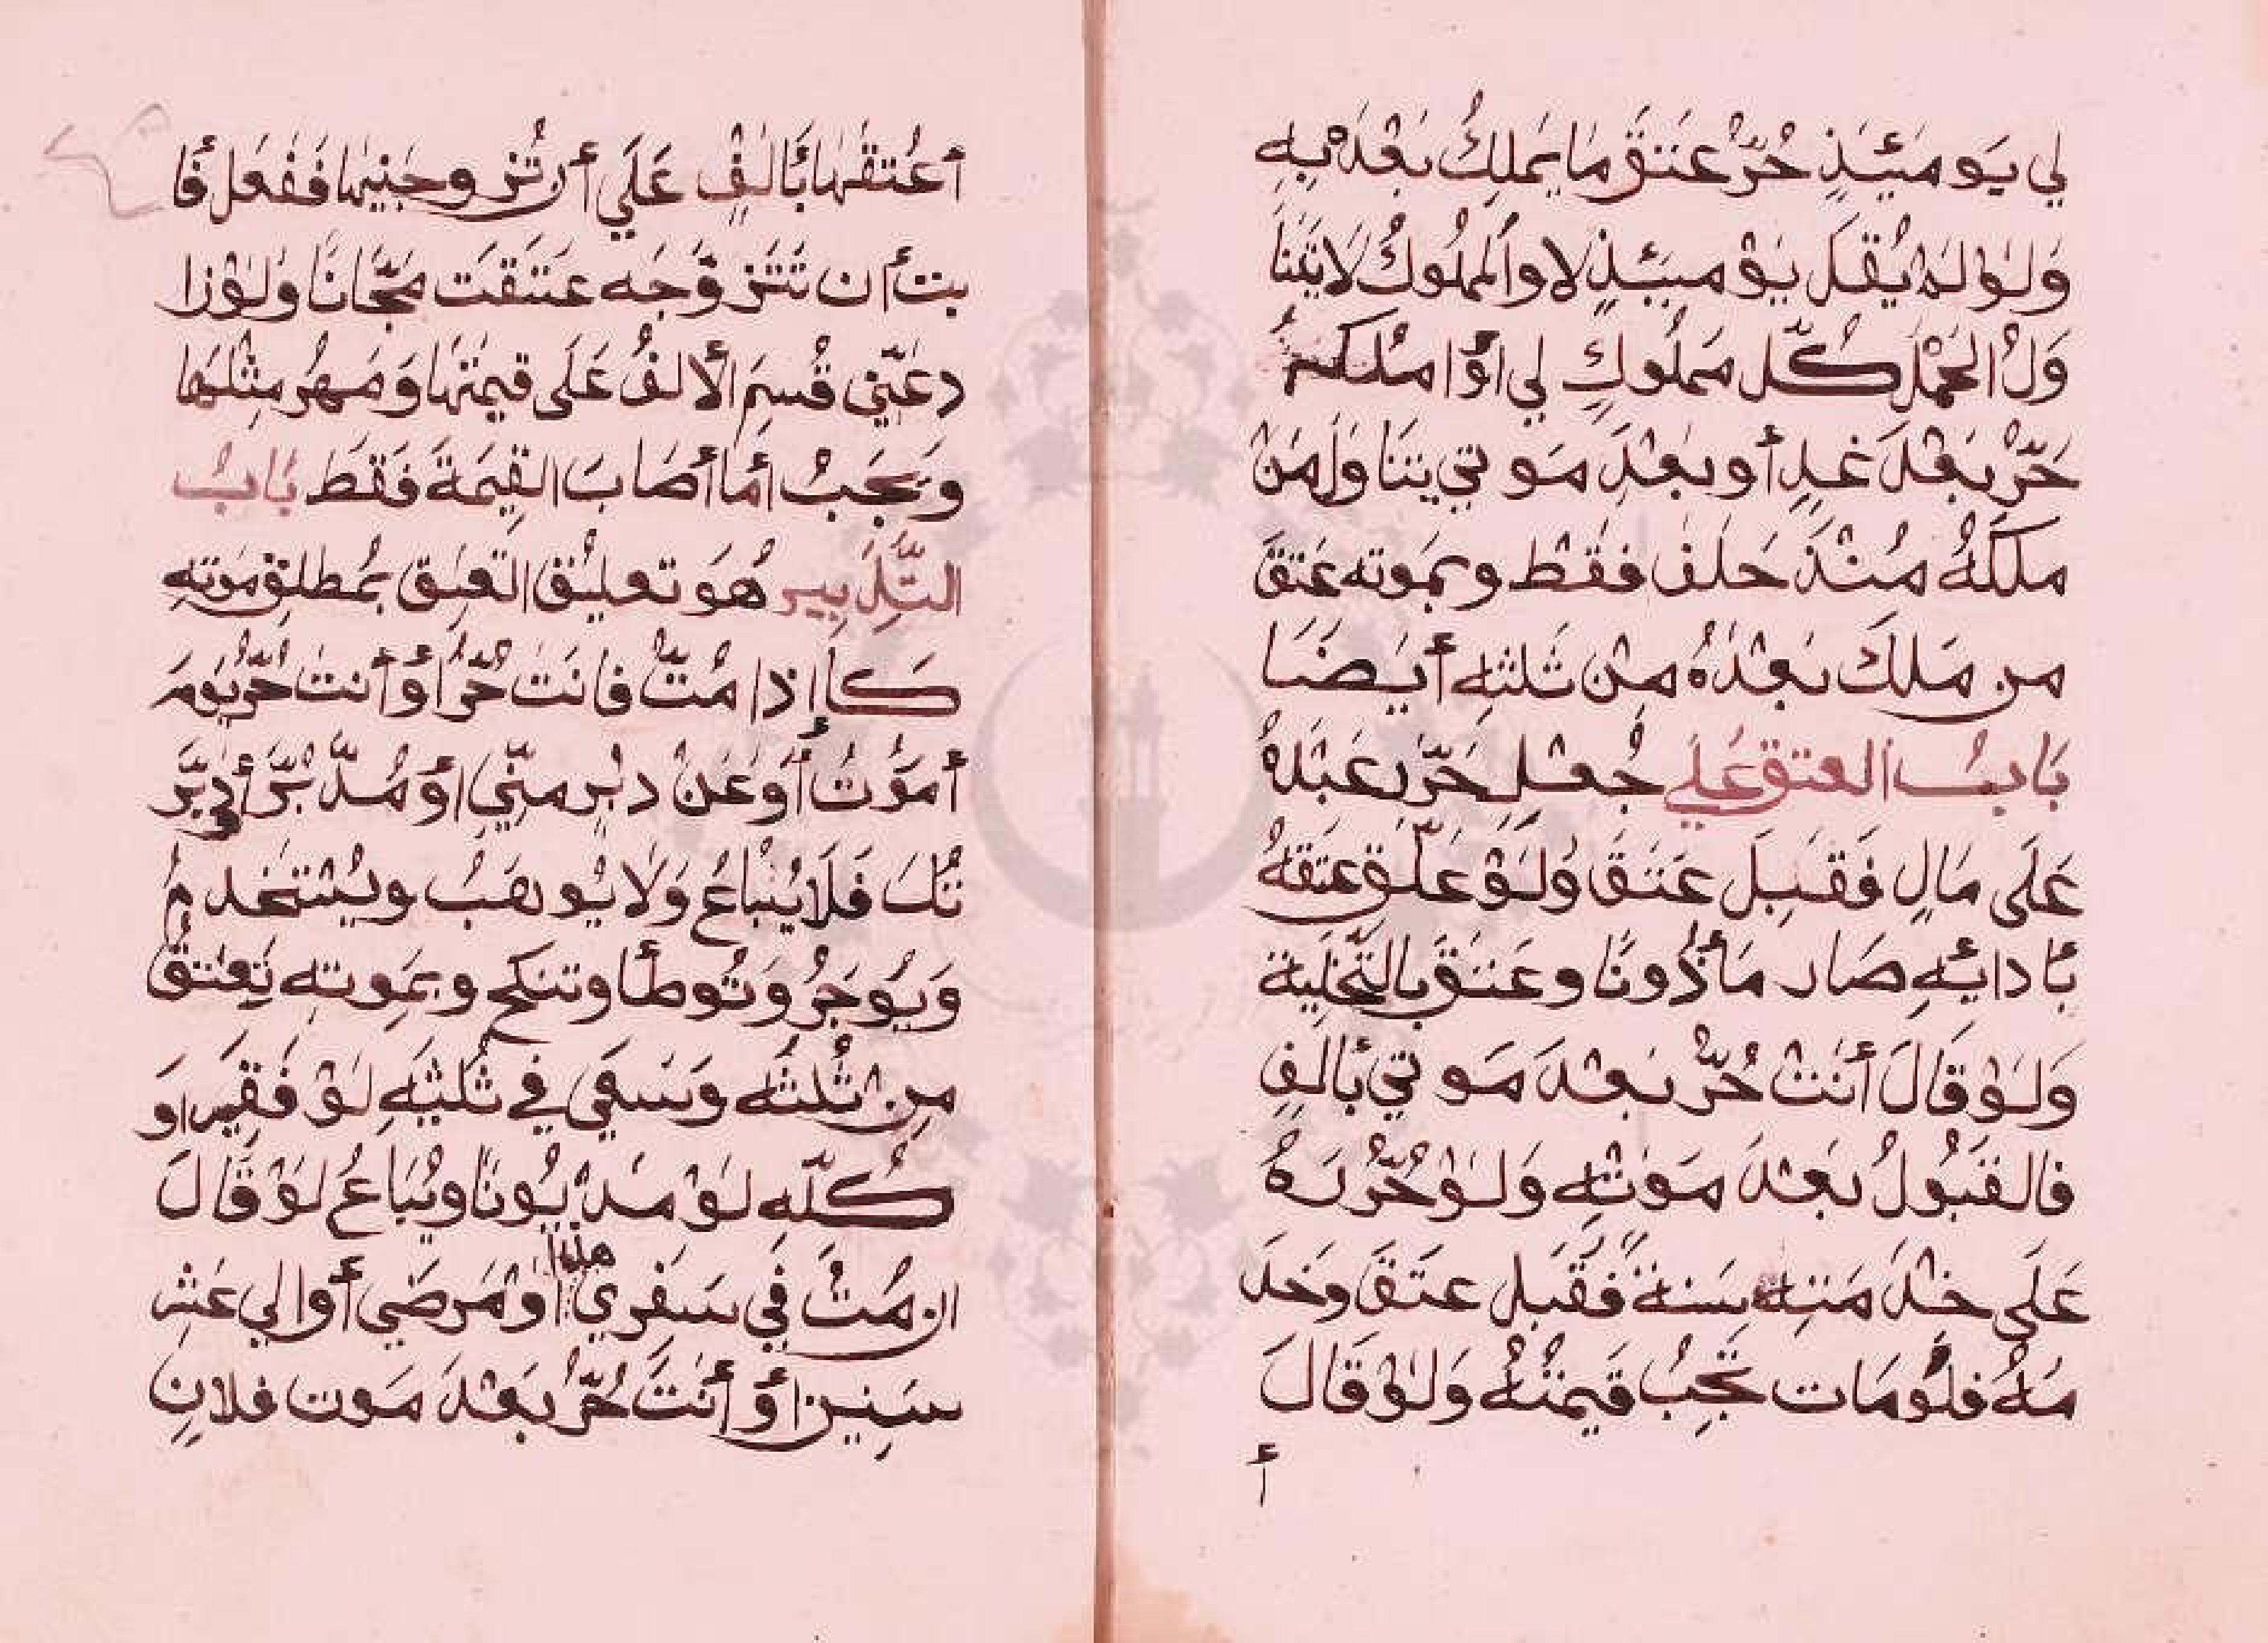 لي يَومَئِذٍ حُرٌّ عَتَقَ مَا يَملِكُ بَعْدَهُ بِهِ
وَلَوْ لَمْ يُقَلْ يَوْمَئِذٍ لا والمملُوكُ لا يَتَنَا
وَلُ الحَمْلَ كُلّ مَملُوكٍ لي أَوْ املكه
حُرٌّ بَعْدَ غَدٍ أو بعْدَ مَوتي يتنَاوَل مَنْ
ملكَهُ مُنْذُ حَلفَ فقَطْ وبمَوته عَتَقَ
من مَلكَ بَعْدَهُ مِنْ ثلثِهِ أيضَا
بَابُ العتق عَلي جُعْلٍ حَرَّرَ عَبْدَهُ
عَلَى مَالٍ فَقَبِلَ عَتَقَ وَلَوْ عَلّقَ عتقهُ
بأدائِهِ صَار مَأذُونًا وعَتَقَ بالتّخلِيَة
وَلَوْ قَالَ أنْتَ حُرٌّ بَعْدَ مَوتي بألفٍ
فالقَبُولُ بَعْدَ مَوْتِهِ وَلَوْ حُرّرَهُ
عَلَى خِدْمَتِهِ سَنَةً فَقَبِلَ عتَقَ وخدَ
مَهُ فلَوْمَات تَجِبُ قيمتُهُ وَلَوْ قَالَ
أ
أعْتقهَا بألفٍ عَلَي أن تُزوجَنِيهَا فَفعَل فأ
بت أن تَتَزوّجَه عتَقَت مجّانًا وَلَوْ زا
دعَنّي قُسِمَ الألفُ عَلَى قيمتهَا وَمَهْر مِثْلهَا
وَيَجبُ مَا أصَابَ القِيمَةَ فَقَطْ بَابُ
التّدبِير هُوَ تعليْق العِتق بمُطلق مَوتهِ
كَإِذا مُتُّ فانتَ حُرٌّ أوْ أنتَ حُرٌّ يَومَ
أمُوتُ أوْ عَنْ دبُرٍ منّي أوْ مُدَبَّرٌ أوْ دبّر
تُكَ فَلَا يُبَاعُ وَلا يُوهَبُ ويُسْتَخْدمُ
وَيُوجَرُ وَتُوطأ وتنكح وبمَوته يَعتقُ
مِن ثُلثه وَسَعَي في ثُلثيْهِ لَوْ فَقِيرا وَ
كُلّهِ لَوْ مَدْيُونًا ويُبَاعُ لَوْ قَالَ
ان مُتُّ في سَفَري هذا أوْ مَرضِي أوْ الي عَشْر
سَنِينَ أوْ أنْتَ حُرٌّ بَعْدَ مَوت فلانٍ